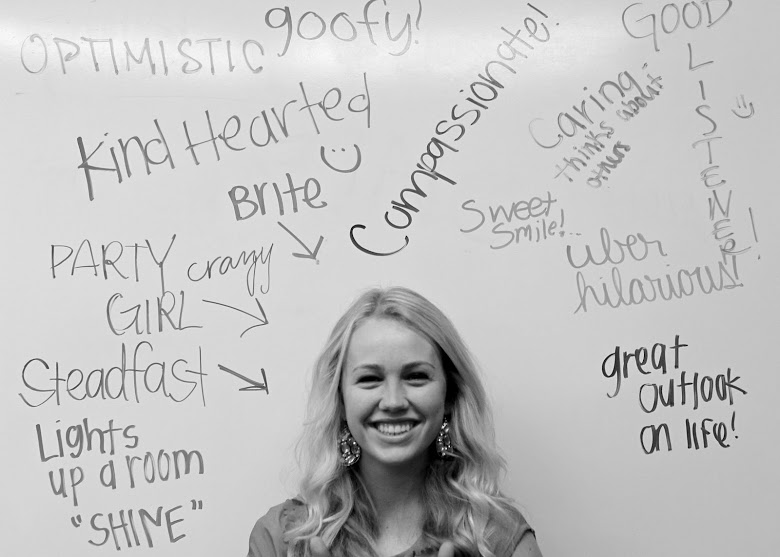 OPTIMISTIC
goofy!
Compassionate!
GOOD
LISTENER!
Kind Hearted
Caring-
thinks about
others
BRITE
Sweet
Smile!..
PARTY crazy
GIRL
uber
hilarious!
Steadfast
great
outlook
on life!
Lights
up a room
"SHINE"